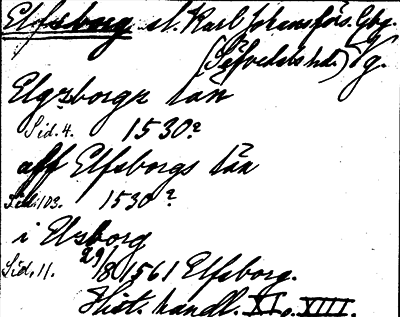 Elfsborg sl. Karl Johansförs. Gbg.
(Säfvedals hd.) Vg.
Elgzborgz län
Sid. 4. 1530?
aff Elfsborgs län
Sid. 103. 1530?
i Elzborg
Sid. 11. 29/8 1561 Elfsborg.
Hist. handl. XI o. XIII.